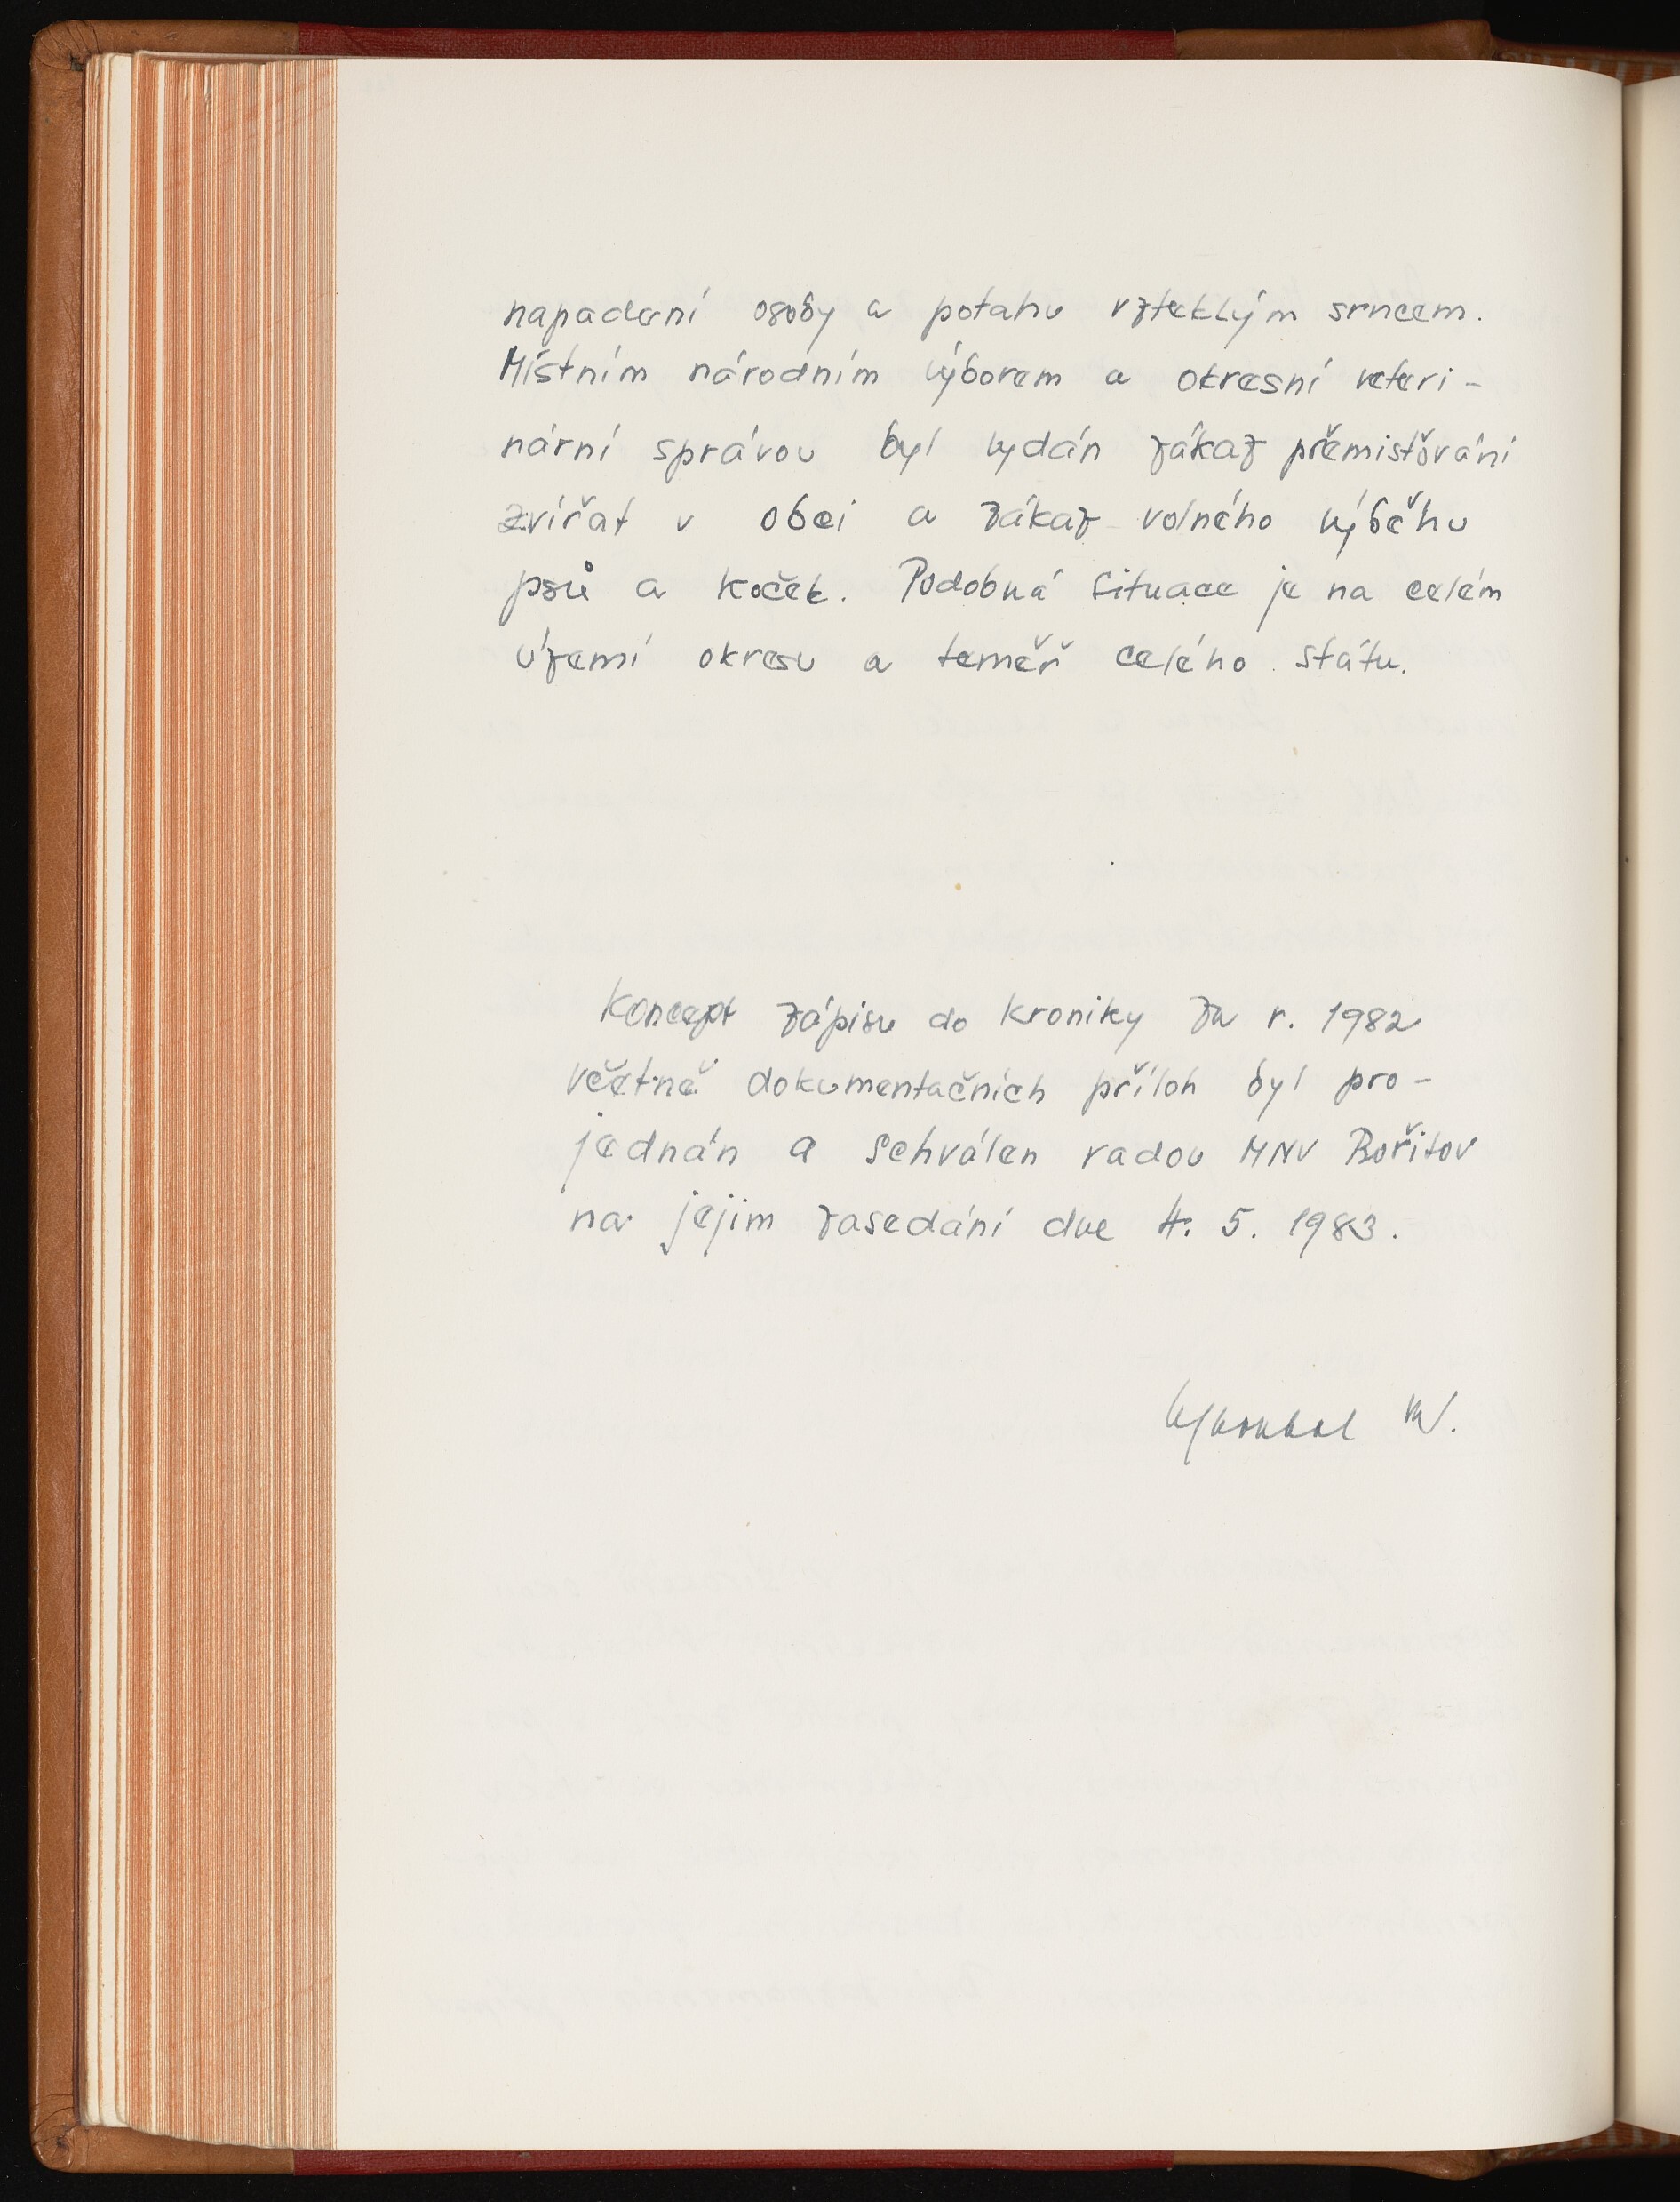 napadení osoby a potahu vzteklým srncem.
Místním národním výborem a okresní veteri-
nární správou byl vydán zákaz přemisťování
zvířat v obci a zákaz volného výběhu
psů a koček. Podobná situace je na celém
území okresu a téměř celého státu.
Koncept zápisu do kroniky za r. 1982
včetně dokumentačních příloh byl pro-
jednán a schválen radou MNV Bořitov
na jejím zasedání dne 4. 5. 1983.